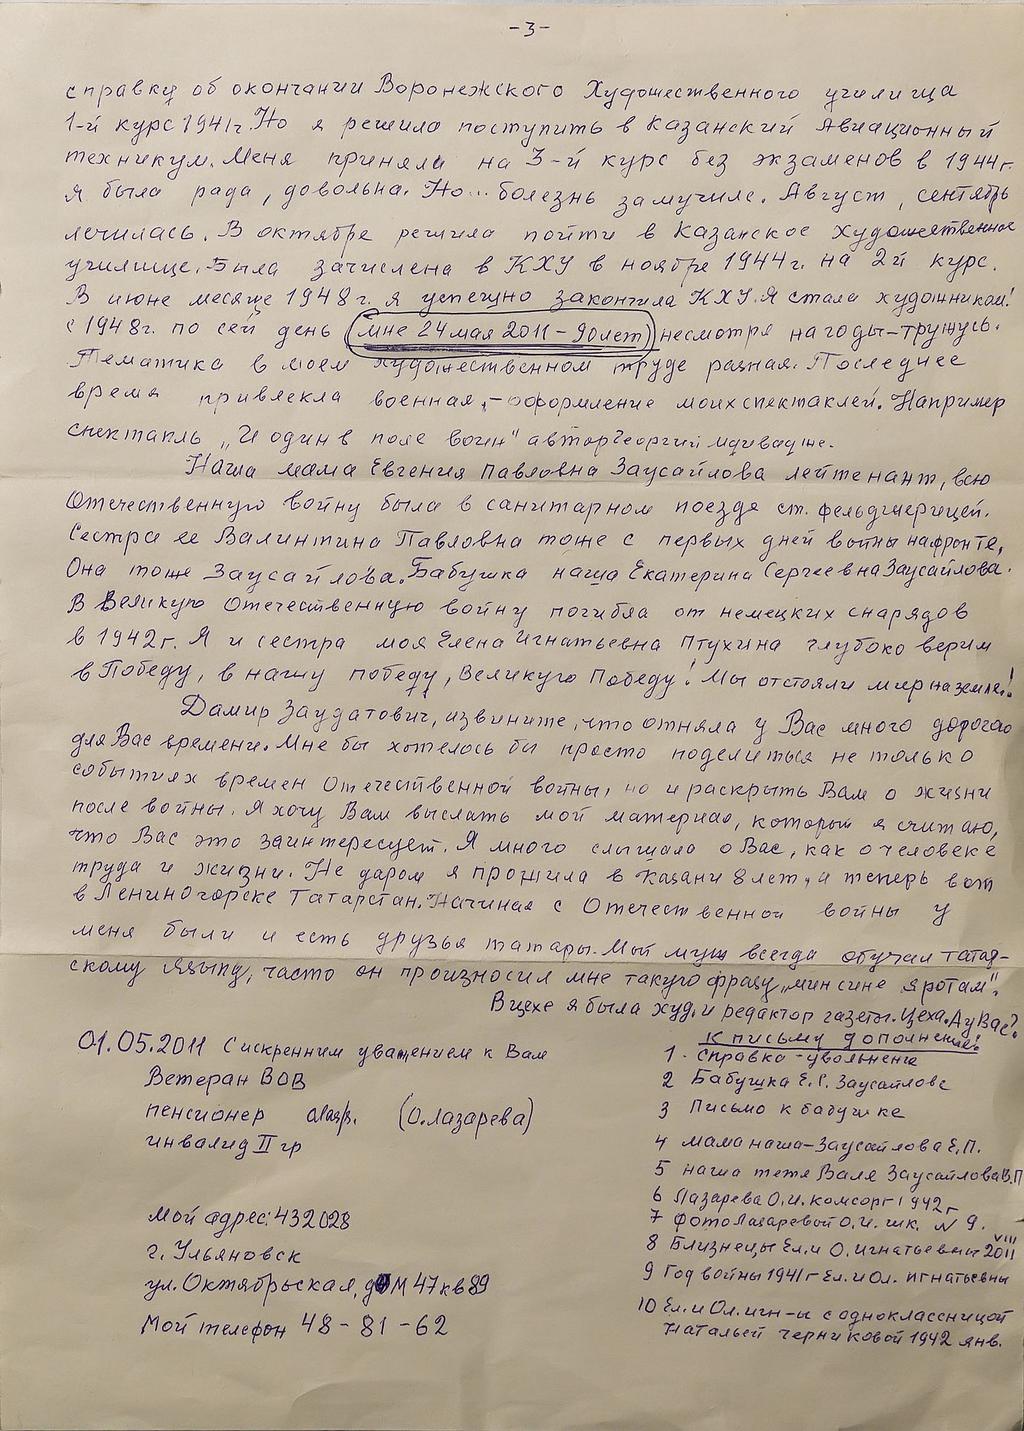 -3-
справку об окончании Воронежского Художественного училища
1-й курс 1941г. Но я решила поступить в Казанский Авиационный
техникум. Меня приняли на 3-й курс без экзаменов в 1944г.
я была рада, довольна. Но... болезнь замучила. Август, сентябрь
лечилась. В октябре решила пойти в Казанское художественное
училище. Была зачислена в КХУ в ноябре 1944г. на 2й курс.
В июне месяце 1948г. я успешно закончила КХУ. Я стала художником!
с 1948г. по сей день (мне 24 мая 2011-90лет) несмотря на годы-тружусь.
Тематика в моем художественном труде разная. Последнее
время привлекла военная,-оформление моих спектаклей. Например
спектакль „И один в поле воин" автор Георгий Мдивадше.
Наша мама Евгения Павловна Заусайлова лейтенант, всю
Отечественную войну была в санитарном поезде ст. фельдшерицей.
Сестра ее Валинтина Павловна тоже с первых дней войны на фронте,
Она тоже Заусайлова. Бабушка наша Екатерина Сергеевна Заусайлова.
В Великую Отечественную войну погибла от немецких снарядов
в 1942г. Я и сестра моя Елена Игнатьевна Птухина глубоко верим
в Победу, в нашу победу, Великую Победу! Мы отстояли мир на земле!
Дамир Заудатович, извините, что отняла у Вас много дорогого
для Вас времени. Мне бы хотелось бы просто поделиться не только
событиях времен Отечественной войны, но и раскрыть Вам о жизни
после войны. Я хочу Вам выслать мой материал, который я считаю,
что Вас это заинтересует. Я много слышала о Вас, как о человеке
труда и жизни. Не даром я прожила в Казани 8 лет, а теперь вот
в Лениногорске Татарстан. Начиная с Отечественной войны у
меня были и есть друзья татары. Мой муж всегда обучал татар-
скому языку, часто он произносил мне такую фразу „мин сине яротам".
В цехе я была худ. и редактор газеты. Цеха. А у Вас?
К письму дополнение!
01.05.2011 С искренним уважением к Вам
Ветеран ВОВ
пенсионер (О. Лазарева)
инвалид II гр
Мой адрес: 432028
г. Ульяновск
ул. Октябрьская, дом 47 кв 89
Мой телефон 48-81-62
1. Справка-увольнение
2 Бабушка Е.С. Заусайлова
3 Письмо к бабушке
4 мама наша-Заусайлова Е.П.
5 наша тетя Валя Заусайлова В.П
6 Лазарева О.И. комсорг 1942г
7 фото Лазаревой О.И. шк. N 9.
8 Близнецы Ел. и О. Игнатьевны VIII 2011
9 Год войны 1941г Ел. и Ол. Игнатьевны
10 Ел. и Ол. Игн-ы с одноклассницой
Натальей Черниковой 1942 янв.